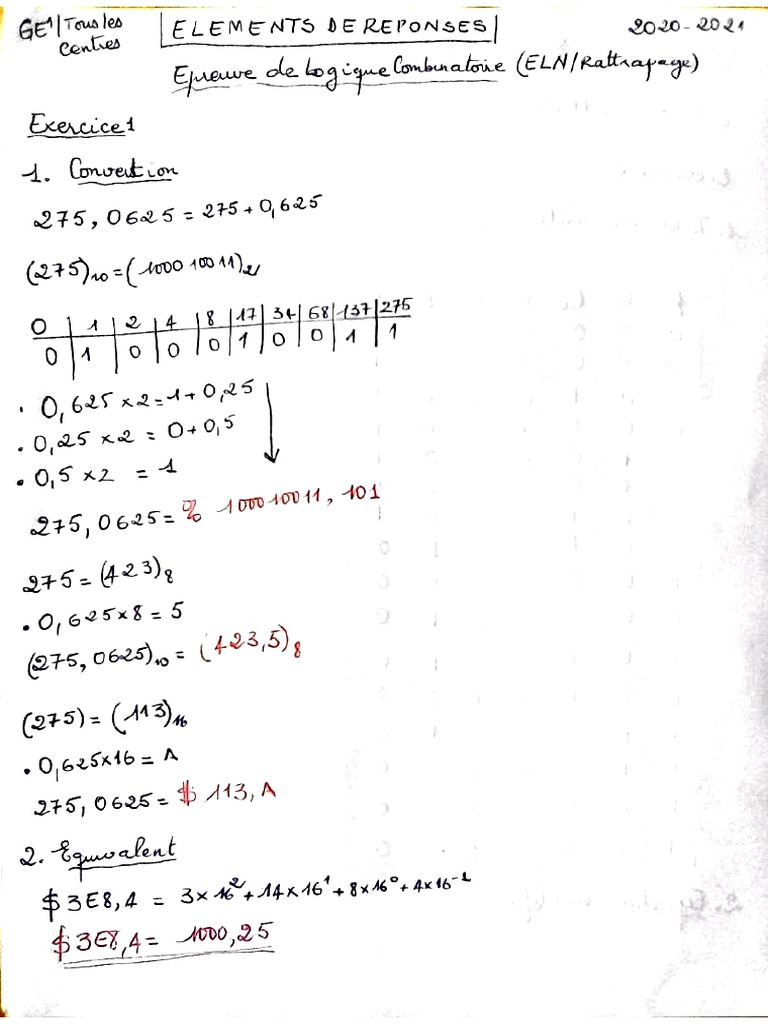 GE1/Tous les Centres
ELEMENTS DE REPONSES
2020-2021
Epreuve de Logique Combinatoire (ELN/Rattrapage)
Exercice 1
1. Convertion
275,0625 = 275 + 0,625
(275)10 = (100010011)2
0 | 1 | 2 | 4 | 8 | 17 | 34 | 68 | 137 | 275
0 | 1 | 0 | 0 | 0 | 1 | 0 | 0 | 1 | 1
. 0,625 × 2 = 1 + 0,25
. 0,25 × 2 = 0 + 0,5
. 0,5 × 2 = 1
275,0625 = % 100010011,101
275 = (423)8
. 0,625 × 8 = 5
(275,0625)10 = (423,5)8
(275) = (113)16
. 0,625 × 16 = A
275,0625 = $ 113,A
2. Equivalent
$ 3E8,4 = 3 × 16² + 14 × 16¹ + 8 × 16⁰ + 4 × 16⁻¹
$ 3E8,4 = 1000,25